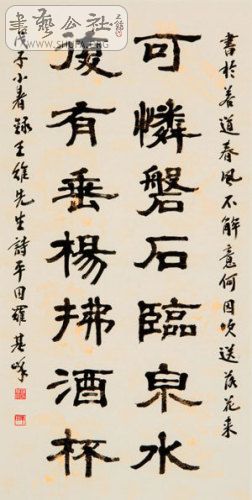 書於若道春風不解意何因吹送落花来
可憐磐石臨泉水
復有垂楊拂酒杯
戊子小暑錄王維先生詩平田羅基峯
艺公社
WWW.SHUFA.ORG